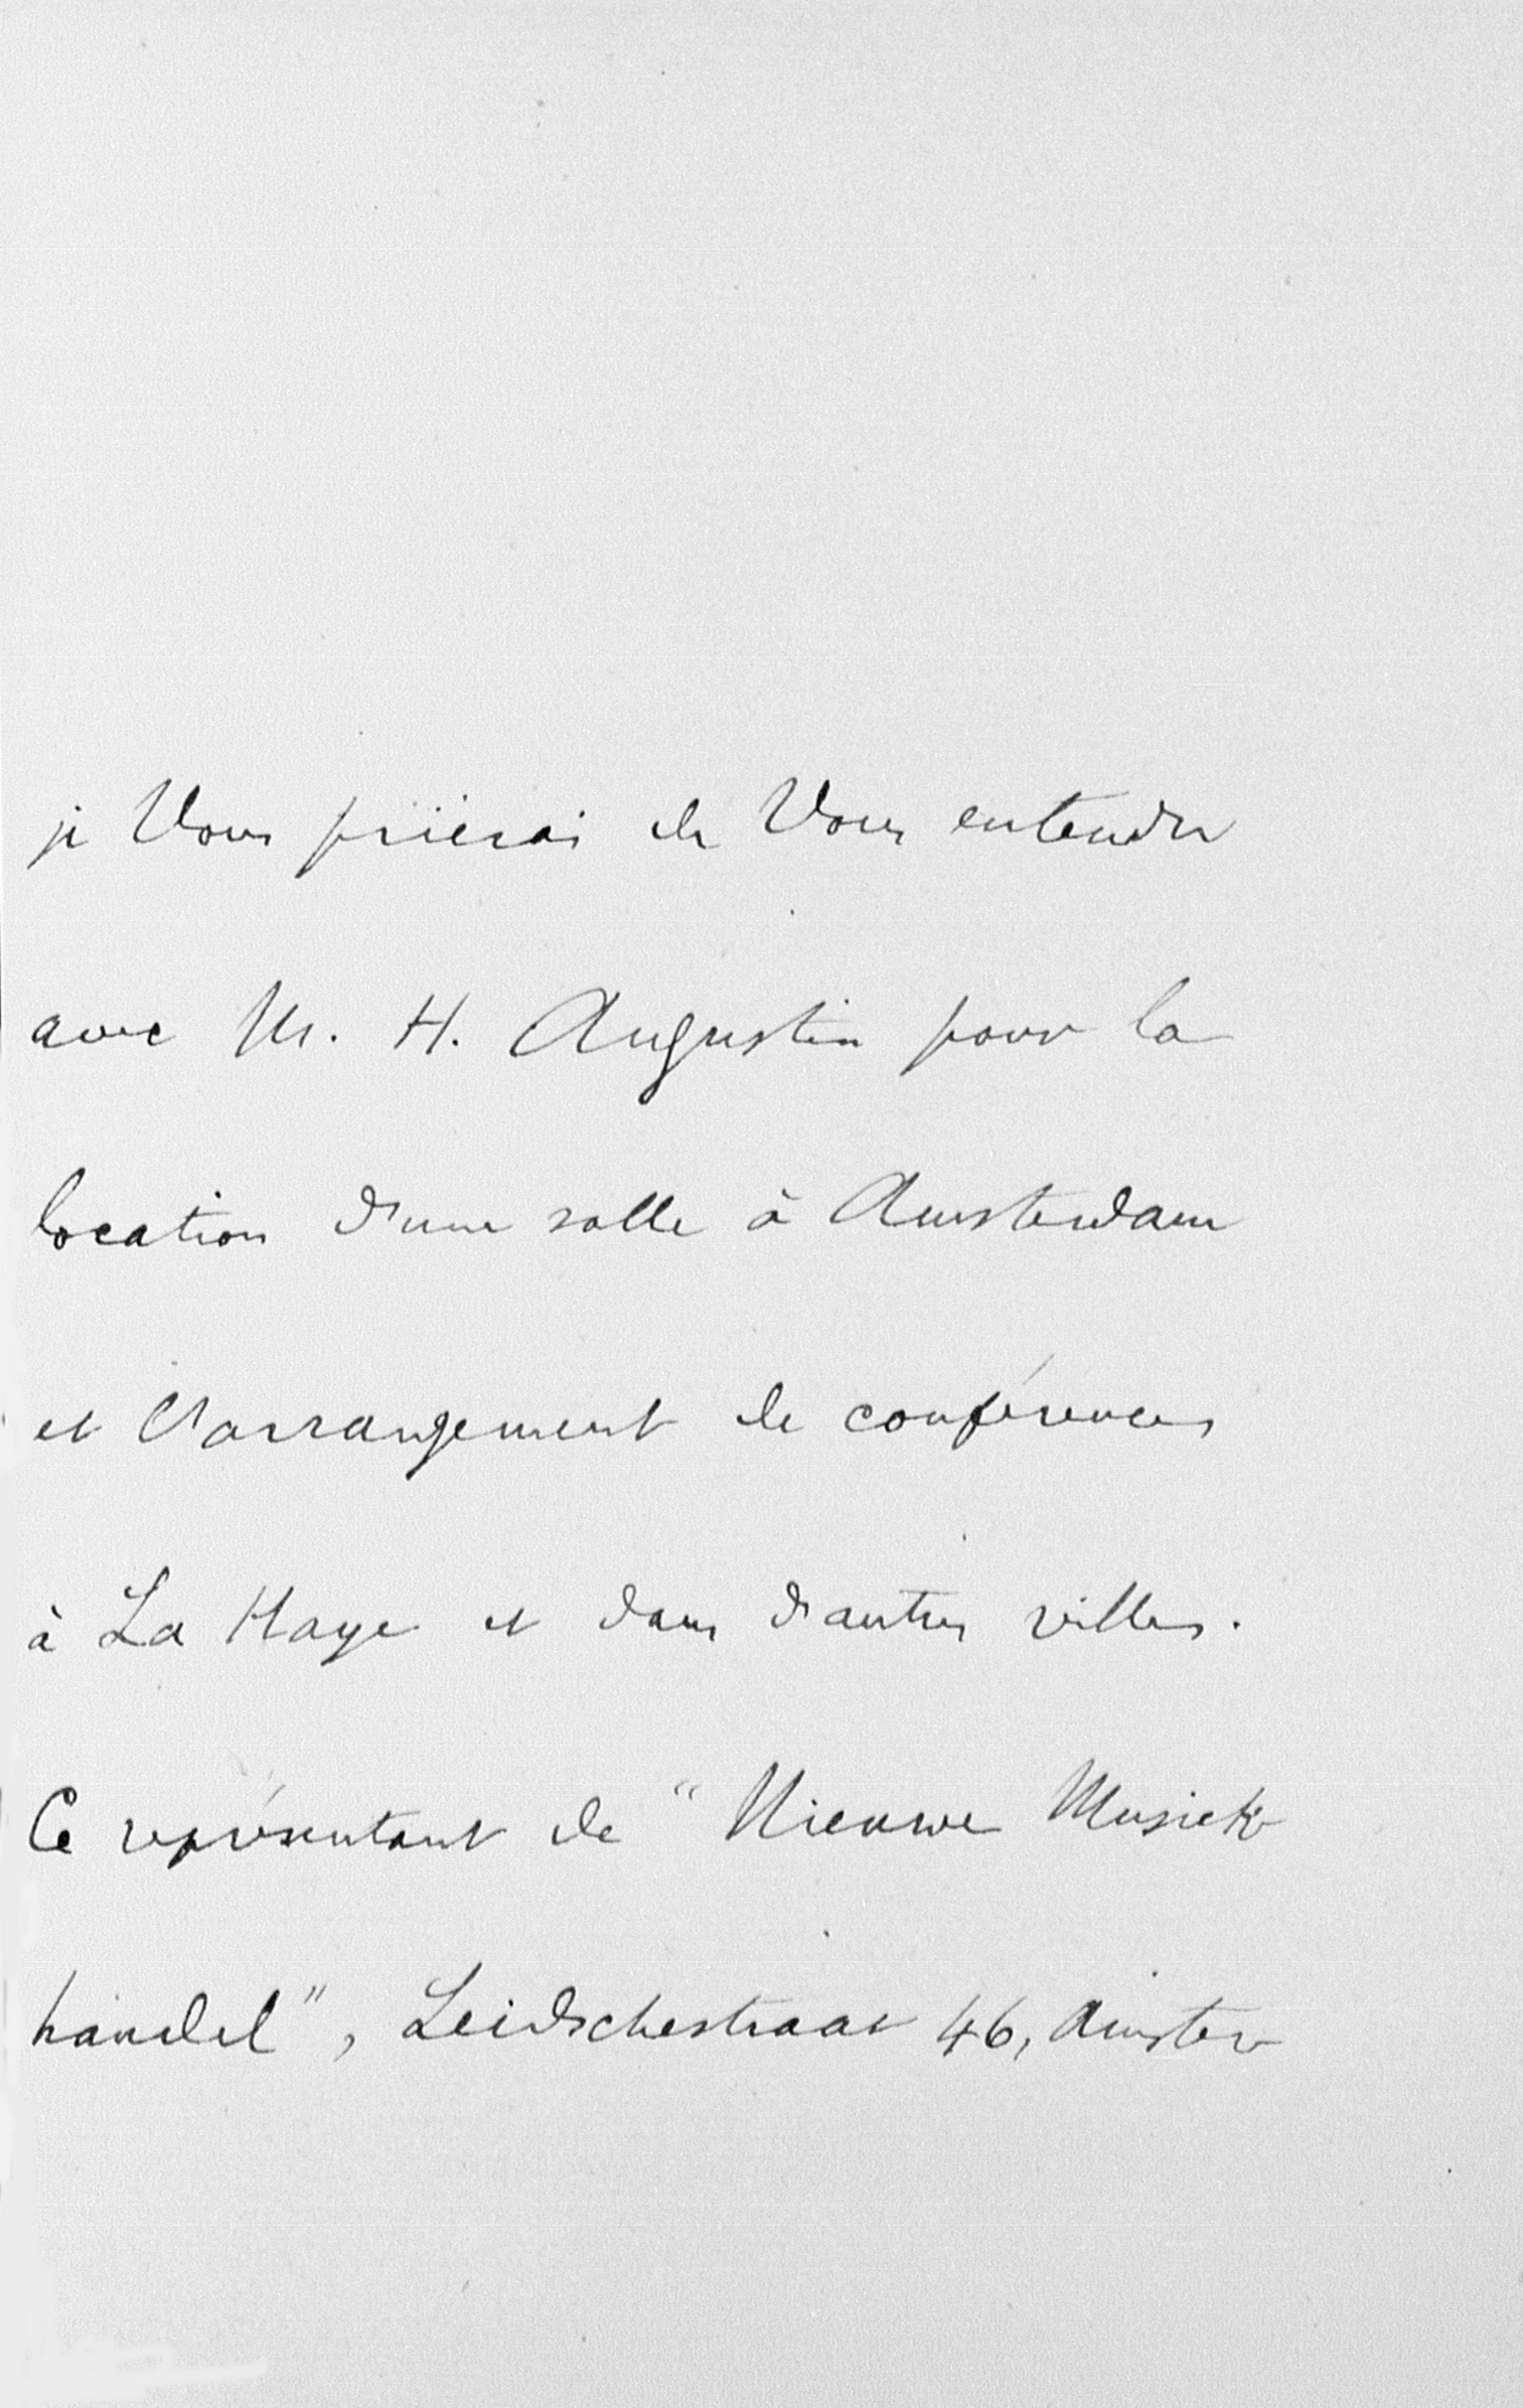 je Vous priërai de Vous entendre
avec M. H. Augustin pour la
location d'une salle à Amsterdam
et l'arrangement de conférences
à La Haye et dans d'autres villes.
Ce représentant de "Nieuwe Musiek
handel", Leidschestraat 46, Amster